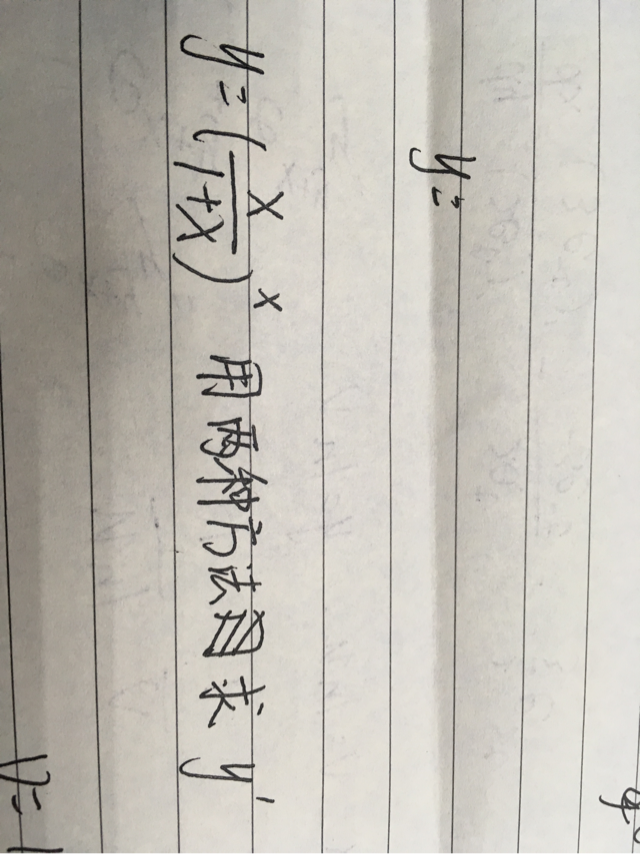 y=
y=(x/(1+x))^x 用两种方法求y'
y=1